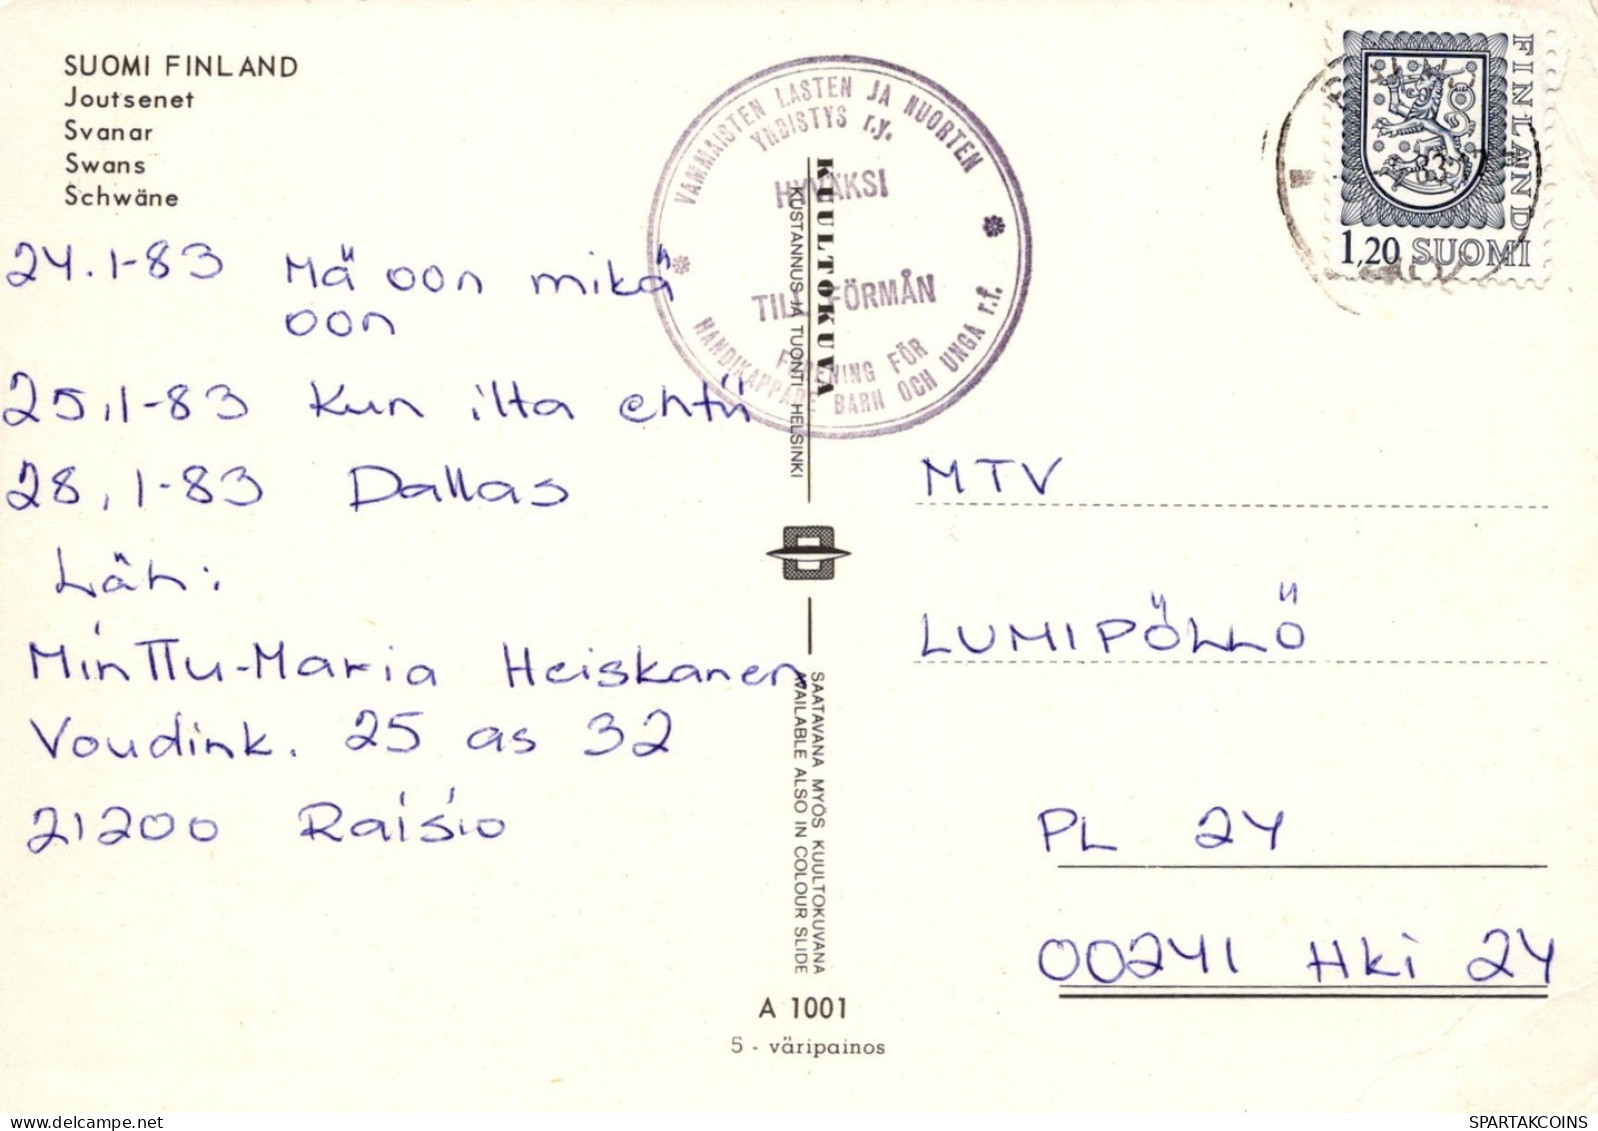 SUOMI FINLAND
Joutsenet
Svanar
Swans
Schwäne
24.1-83 Mä oon mikä
oon
25.1-83 Kun ilta ehtii
28.1-83 Dallas
Läh:
Minttu-Maria Heiskanen
Voudink. 25 as 32
21200 Raisio
VAMMAISTEN LASTEN JA NUORTEN
YHDISTYS r.y.
HYVÄKSI
TILL FÖRMÅN
FÖRENING FÖR
HANDIKAPPADE BARN OCH UNGA r.f.
KUULTOKUVA
KUSTANNUS JA TUONTI HELSINKI
SAATAVANA MYÖS KUULTOKUVANA
AVAILABLE ALSO IN COLOUR SLIDE
A 1001
5 - väripainos
FINLAND
1,20 SUOMI
MTV
LUMIPÖLLÖ
PL 24
00241 Hki 24
SPARTAKCOINS